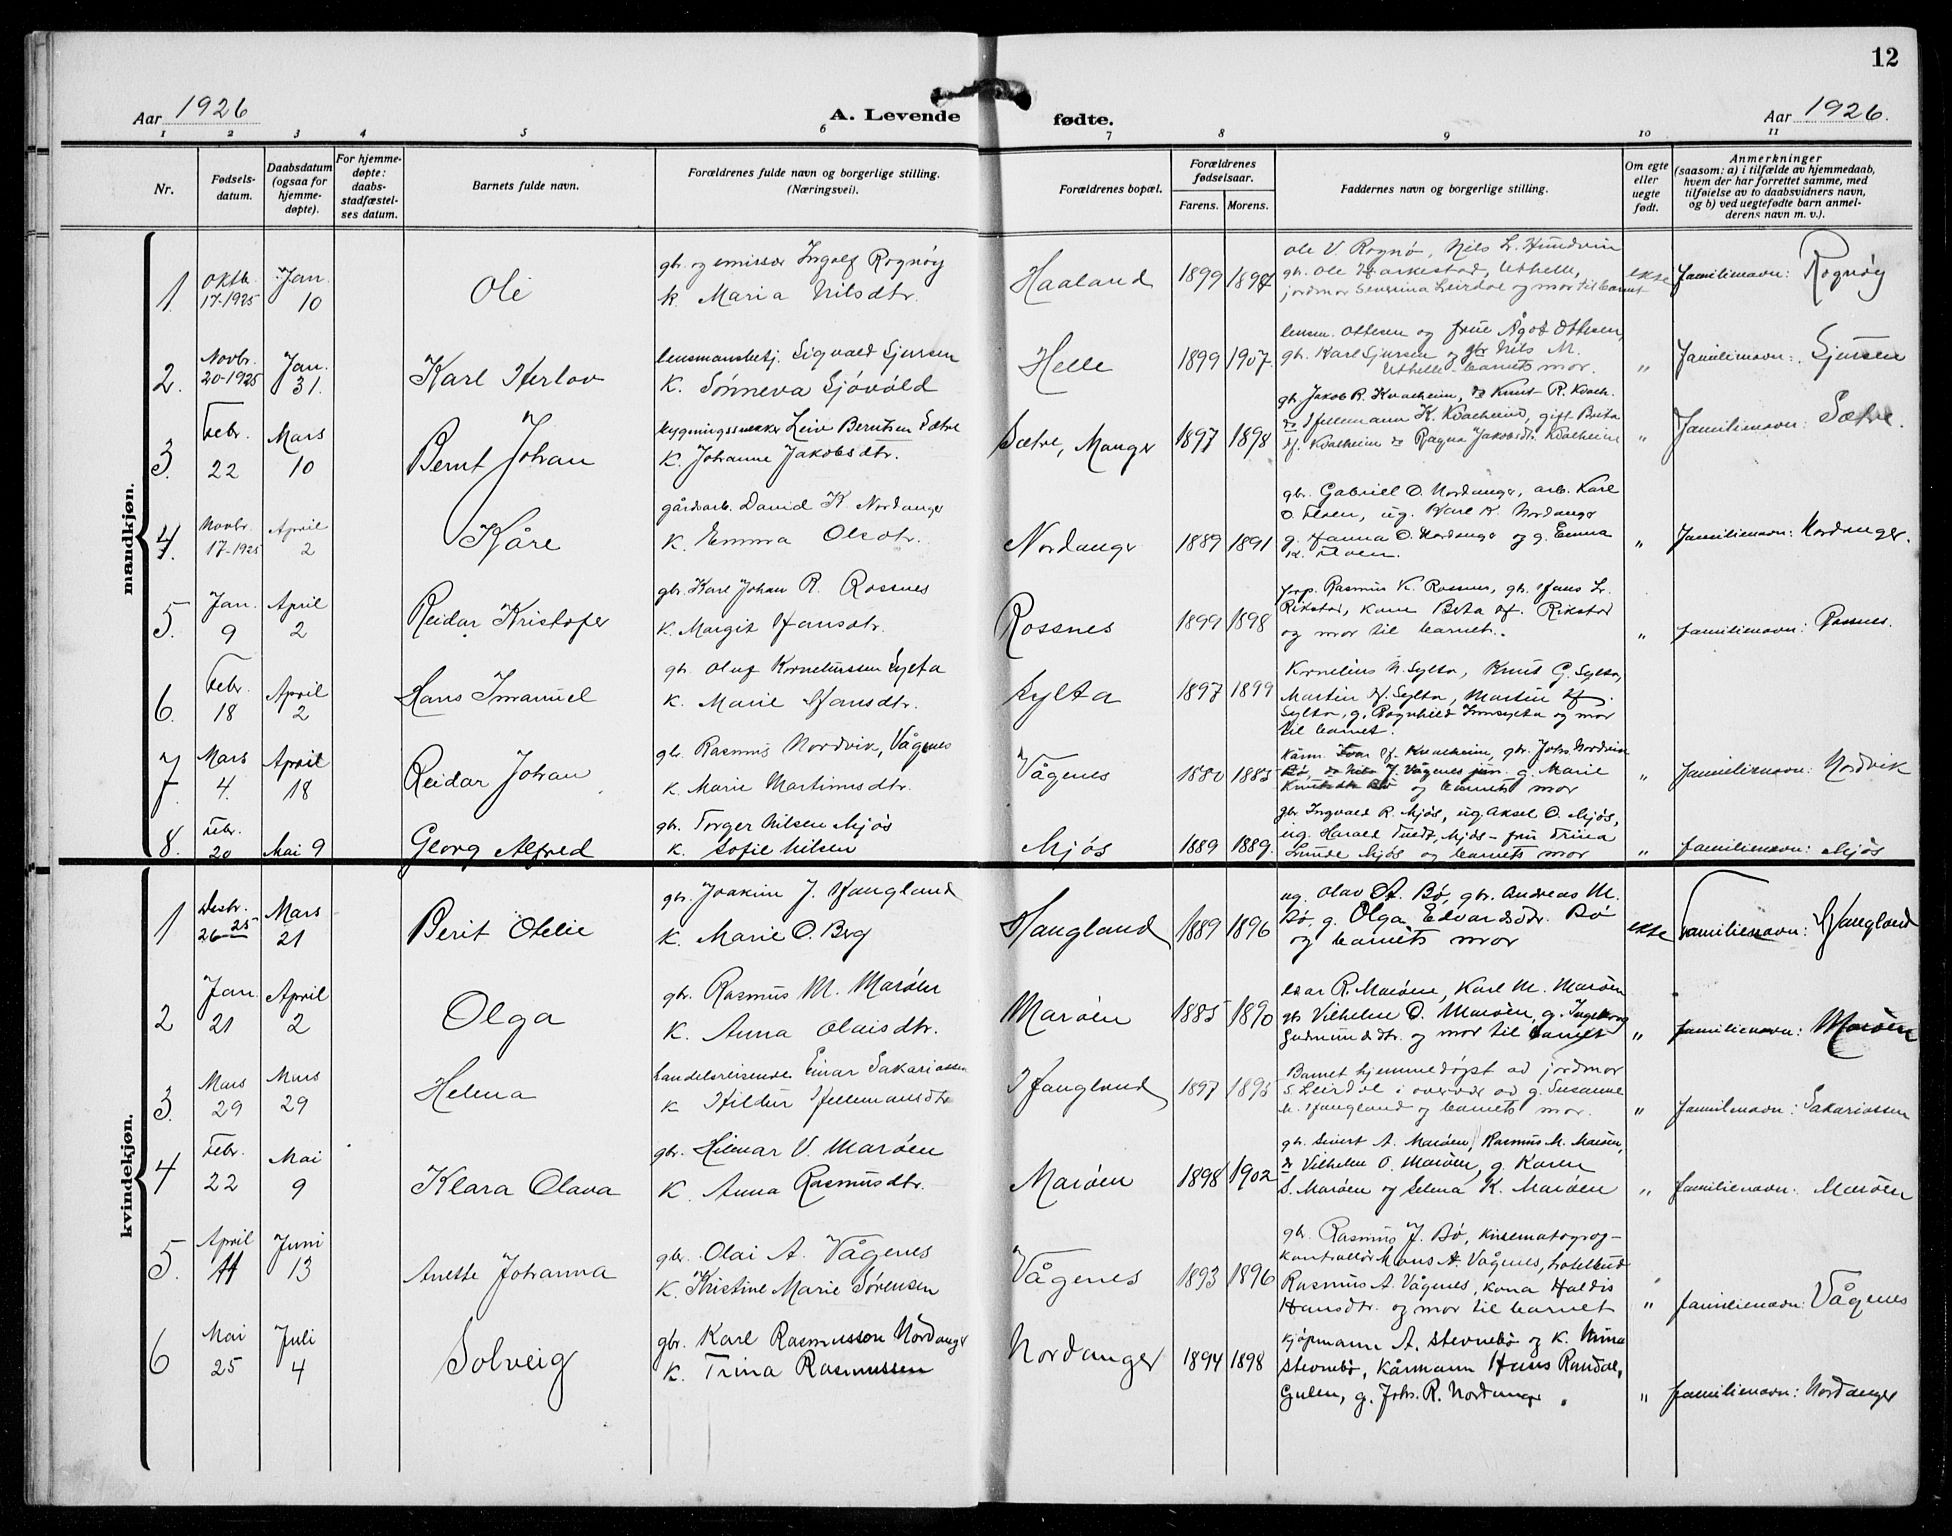 12
Aar 1926
A. Levende fødte.
Aar 1926.
1 2 3 4 5 6 7 8 9 10 11
Nr.
Fødsels-
datum.
Daabsdatum
(ogsaa for
hjemme-
døpte).
For hjemme-
døpte:
daabs-
stadfæstel-
ses datum.
Barnets fulde navn.
Forældrenes fulde navn og borgerlige stilling.
(Næringsvei).
Forældrenes bopæl.
Forældrenes
fødselsaar.
Farens. Morens.
Faddernes navn og borgerlige stilling.
Om egte
eller
uegte
født.
Anmerkninger
(saasom: a) i tilfælde av hjemmedaab,
hvem der har forrettet samme, med
tilføielse av to daabsvidners navn,
og b) ved uegtefødte barn anmel-
derens navn m. v.).
mandkjøn.
1
Oktb.
17-1925
Jan.
10
Ole
gbr. og emissær Ingolf Rognøy
k. Maria Nilsdtr.
Haaland
1899 1894
Ole V. Rognø, Nils L. Hundvin
gbr. Ole Harkestad, Uthelle,
jordmor Severina Leirdal og mor til barnet
ekte
Familienavn: Rognøy
2.
Novbr.
20-1925
Jan.
31.
Karl Herlov
lensmansbetj. Sigvald Sjursen
K. Sønneva Sjøvold
Helle
1899 1907.
lensm. Ottesen og frue Ågot Ottesen,
gbr. Karl Sjursen og gbr Nils M.
Uthelle - barnets mor.
"
Familienavn: Sjursen
3.
Febr.
22
Mars
10
Bernt Johan
bygningssnekker Leiv Berntsen Sætre
K. Johanne Jakobsdtr.
Sætre, Manger
1897 1898
gb. Jakob R. Kvalheim, do Knut R. Kvalh.
do Hellemann K. Kvalheim, gift Brita
H. Kvalheim do Ragna Jakobsdtr. Kvalheim
"
Familienavn: Sætre.
4.
Novbr.
17-1925
April
2
Kåre
gårdsarb. David K. Nordanger
K. Emma Olsdtr.
Nordanger
1889 1891
gbr. Gabriel O. Nordanger, arb. Karl
O. Floen, ug. Karl K. Nordanger
g. Hanna O. Nordanger og g. Emma
K. Floen.
"
Familienavn: Nordanger.
5.
Jan.
9
April
2
Reidar Kristofer
gbr. Karl Johan R. Rossnes
K. Margit Hansdtr.
Rossnes
1899 1898
Forp. Rasmus K. Rossnes, gb. Hans L.
Rikstad, kone Brita H. Rikstad
og mor til barnet.
"
familienavn: Rossnes.
6.
Febr.
18
April
2
Hans Imanuel
gbr. Oluf Korneliussen Sylta
K. Marie Hansdtr.
Sylta
1897 1899
Kornelius N. Sylta, Knut G. Sylta,
Martin H. Sylta, Martin H.
Sylta, g. Ragnhild Innsylta og mor
til barnet.
7.
Mars
4.
April
18
Reidar Johan
gbr. Rasmus Nordvik, Vågenes
K. Marie Martinusdtr.
Vågenes
1880 1885
og barnets mor
"
familienavn: Nordvik
8.
Febr.
20
Mai 9
Georg Alfred
gbr. Torger Nilsen Mjøs
K. Sofie Nilsen
Mjøs
1889 1889.
gbr. Ingvald R. Mjøs, ug. Aksel O. Mjøs,
ug. Harald Tvedt, Mjøs - fru Trina
Lunde Mjøs og barnets mor
"
familienavn: Mjøs
kvindekjøn.
1
Desbr.
26-25
Mars
21
Berit Otelie
gbr. Joakim J. Haugland
K. Marie O. Berg
Haugland
1889 1896
ug. Olav A. Bø, gbr. Andreas M.
Bø, g. Olga Edvardsdtr. Bø
og barnets mor
ekte
Familienavn: Haugland
2
Jan.
21
April
2
Olga
gbr. Rasmus M. Marøen
K. Anna Olaisdtr.
Marøen
1885 1890
Isar R. Marøen, Karl M. Marøen
gbr Vilhelm O. Marøen, g. Ingeborg
Gudmundsdtr. og mor til barnet
"
familienavn: Marøen
3.
Mars
29
Mars
29
Helena
handelsreisende Einar Sakariassen
K Hildur Hellemansdtr
Haugland
1897 1895
Barnet hjemmedøpt av jordmor
S. Leirdal i overvær av g. Susanne
M. Haugland og barnets mor.
"
familienavn: Sakariassen
4
Febr.
22
Mai
9
Klara Olava
gbr. Hilmar V. Marøen
K. Anna Rasmusdtr.
Marøen
1898 1902
gbr. Sivert A. Marøen, Rasmus M. Marøen,
do Vilhelm O. Marøen, g. Karen
S. Marøen og Selma K. Marøen
"
familienavn: Marøen
5.
April
11
Juni
13
Anette Johanna
gbr. Olai A. Vågenes
K. Kristine Marie Sørensen
Vågenes
1893 1896
gbr. Rasmus J. Bø, kinematograf-
kontrollør Mons A. Vågenes, hotelbud
Rasmus A. Vågenes, kona Haldis
Hansdtr. og mor til barnet
"
familienavn: Vågenes
6
Mai
25
Juli
4
Solveig
gbr. Karl Rasmussen Nordanger
K. Trina Rasmussen
Nordanger
1894 1898
kjøpmann A. Stevnebø og K. Mina
Stevnebø, kårmann Hans Randal,
Gulen, g. Johs. R. Nordanger.
"
familienavn: Nordanger